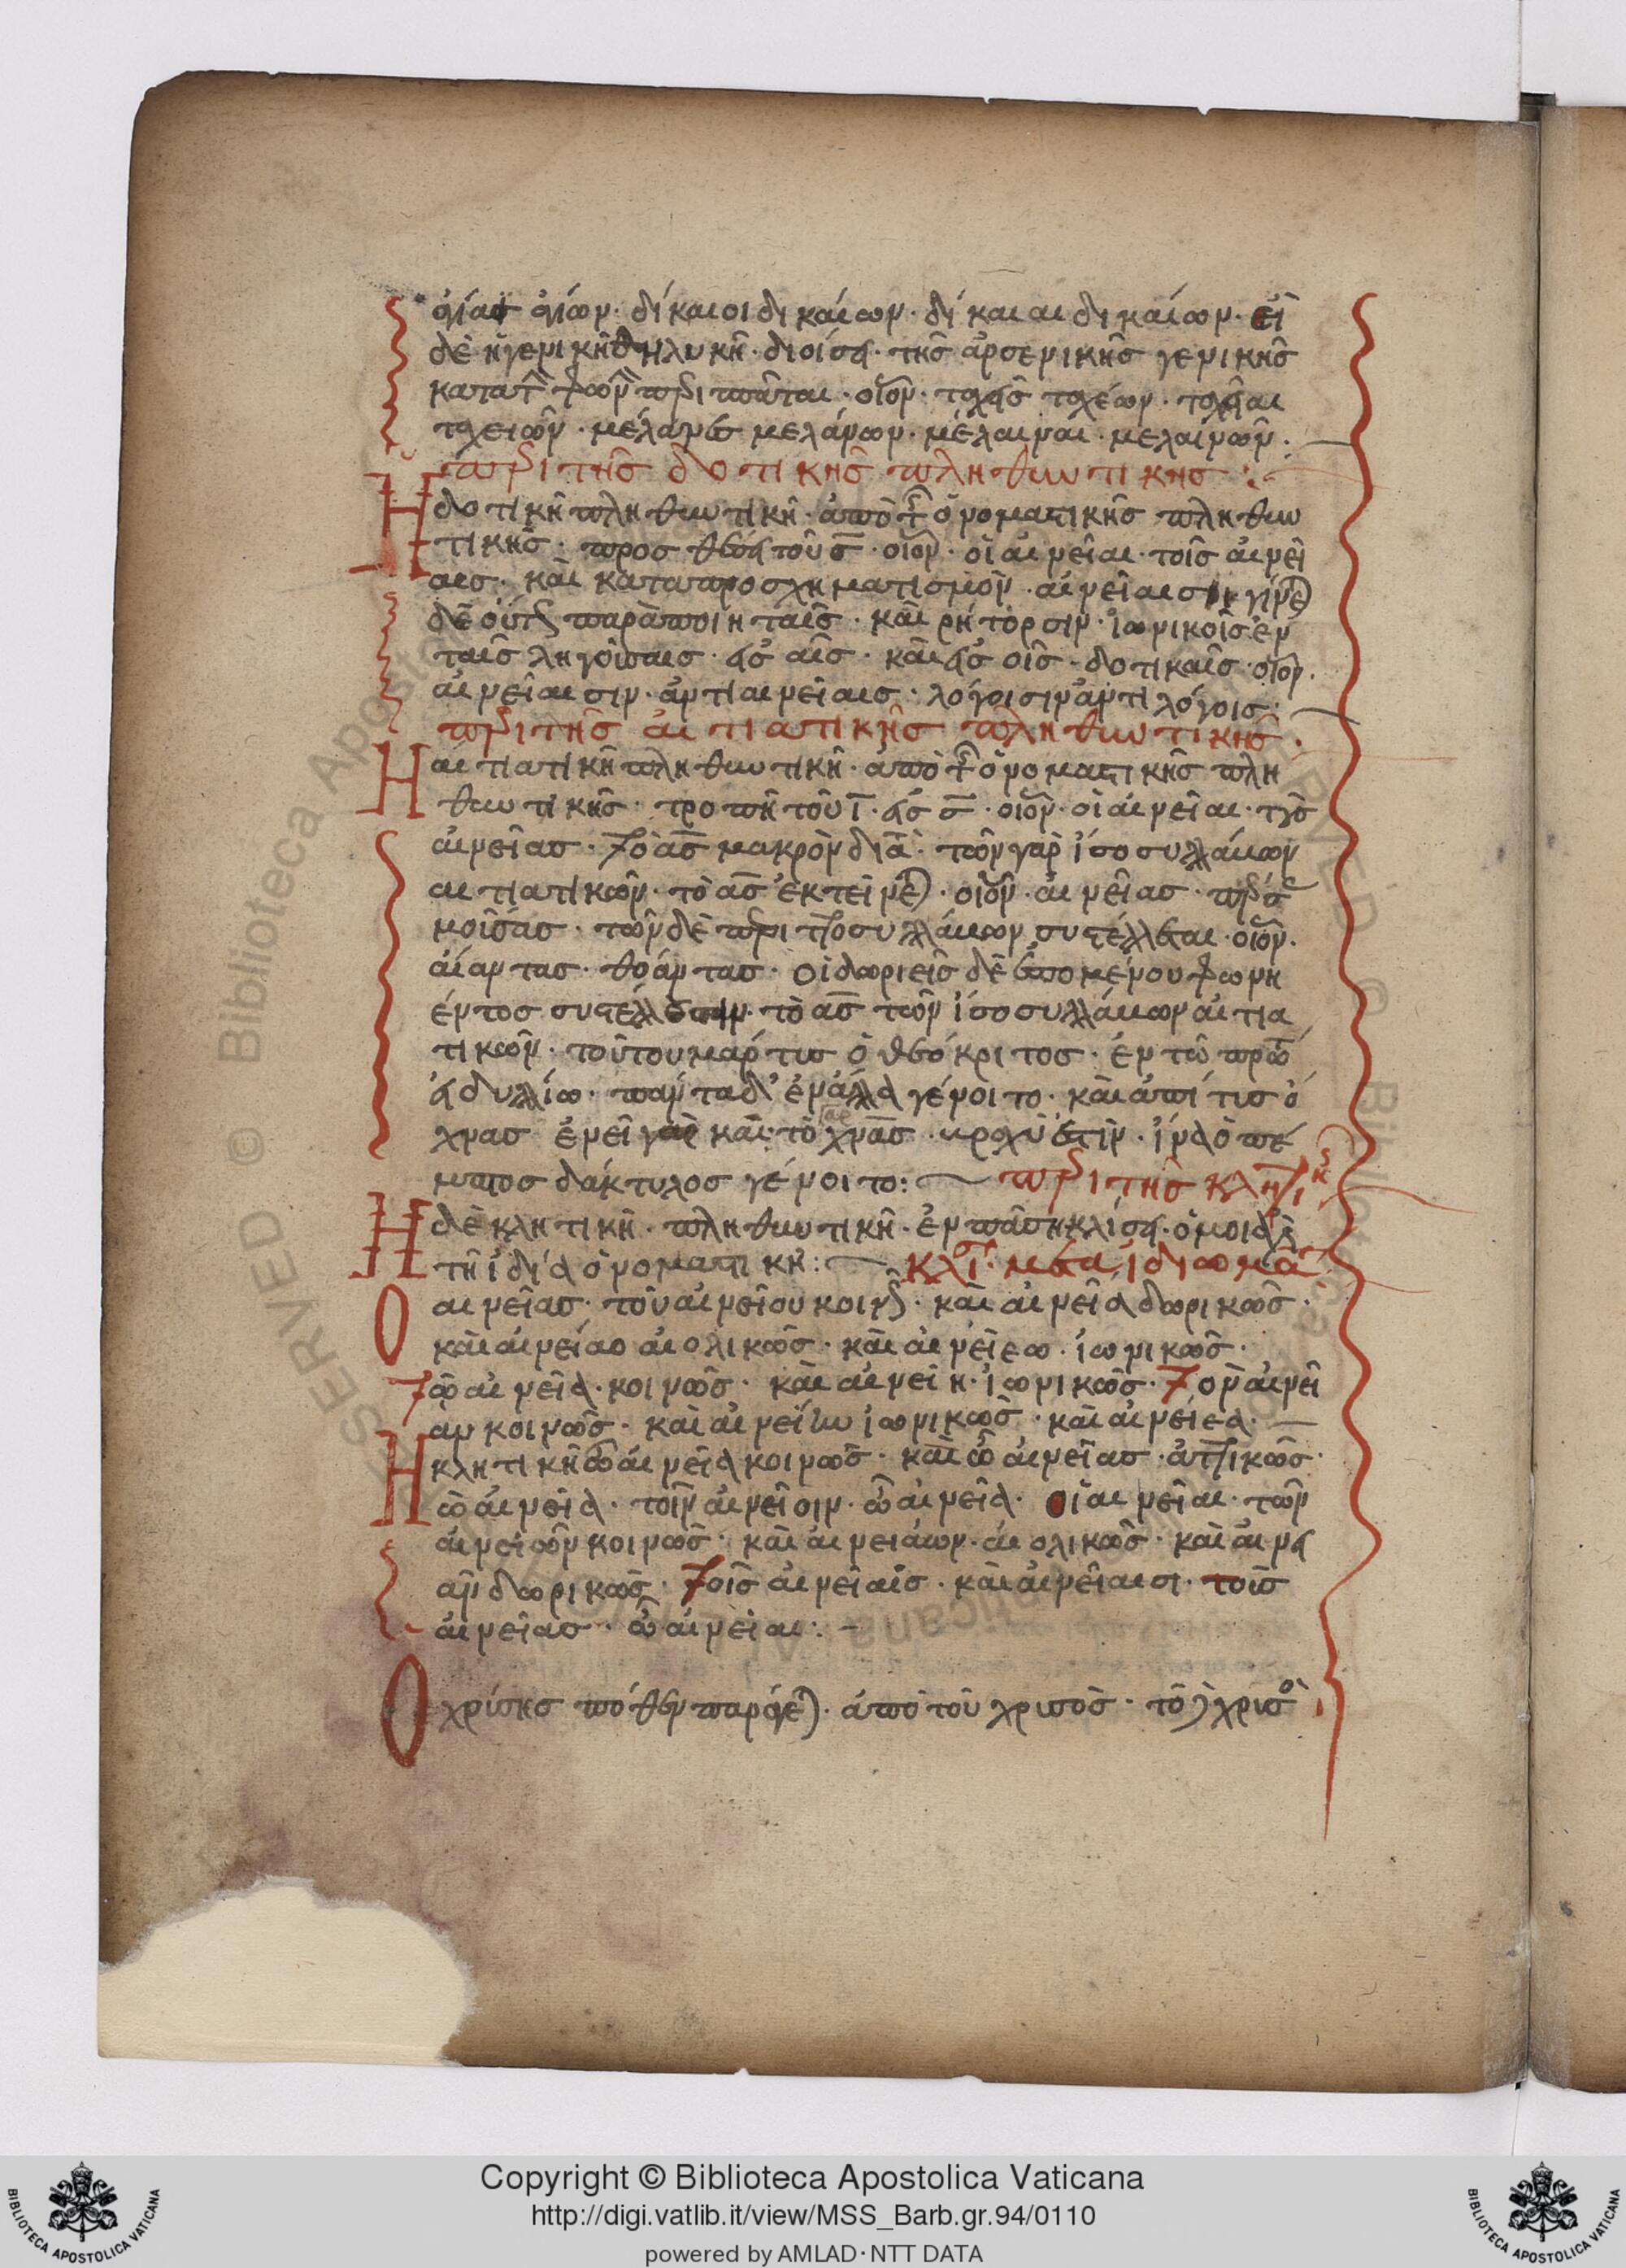 ἁγίαι ἁγίων· δίκαιοι δικαίων· δίκαιαι δικαίων· εἰ
δὲ ἡ γενικὴ θηλυκὴ· διοίσει· τῆς ἀρσενικῆς γενικῆς
κατὰ τ φωνὴν περισπᾶται· οἷον· ταχεῖς ταχέων· ταχεῖαι
ταχειῶν· μέλανες μελάνων· μέλαιναι· μελαινῶν:
περὶ τῆς δοτικῆς πληθυντικῆς:
Η δοτικὴ πληθυντικὴ· ἀπὸ τ ὀνοματικῆς πληθυν
τικῆς· προσθέσει τοῦ σ· οἷον· οἱ αἰνεῖαι· τοῖς αἰνεί
αις· καὶ κατὰ προσχηματισμὸν· αἰνείαισιν γίνε)
δὲ οὕτως παρὰ ποιηταῖς· καὶ ρήτορσιν· ἰωνικοῖς ἐν
ταῖς ληγούσαις· εἰς αις· καὶ εἰς οις· δοτικαῖς· οἷον·
αἰνείαισιν· ἀντὶ αἰνείαις· λόγοισιν ἀντὶ λόγοις:
περὶ τῆς αἰτιατικῆς πληθυντικῆς·
Η αἰτιατικὴ πληθυντικὴ· ἀπὸ τ ὀνοματικῆς πλη
θυντικῆς· τροπῇ τοῦ ι· εἰς σ· οἷον· οἱ αἰνεῖαι· τοὺς
αἰνείας· Τὸ ας μακρὸν διὰ· τῶν γὰρ ἰσοσυλλάβων
αἰτιατικῶν· τὸ ας ἐκτείνε)· οἷον· αἰνείας·
μούσας· τῶν δὲ περιττοσυλλάβων συστέλλεται· οἷον·
αἴαντας· θόαντας· οἱ δωριεῖς δὲ ἑπομένου φωνή
εντος συστέλλουσιν· τὸ ας τῶν ἰσοσυλλάβων αἰτια
τικῶν· τούτου μάρτυς ὁ θεόκριτος· ἐν τῷ πρώ
εἰδυλλίω· πάντα δ' ἔναλλα γένοιτο· καὶ ἁ πίτυς ὄ
χνας ἐνείκαι· καὶ τὸ χνας βραχύ ἐστιν· ἵνα ὁ πέ
μπτος δάκτυλος γένοιτο: περὶ τῆς κλητικῆς
Η δὲ κλητικὴ· πληθυντικὴ· ἐν πάσῃ κλίσει· ὁμοία ἐ
τῇ ἰδίᾳ ὀνοματικῇ: κλι μετὰ ἰδιωμα
Ο αἰνείας· τοῦ αἰνείου κοινῶς· καὶ αἰνεία δωρικῶς·
καὶ αἰνείαο αἰολικῶς· καὶ αἰνείεω· ἰωνικῶς·
Τῷ αἰνείᾳ· κοινῶς· καὶ αἰνείη· ἰωνικῶς· Τὸν αἰνεί
αν κοινῶς· καὶ αἰνείην ἰωνικῶς· καὶ αἰνείεα·
Η κλητικὴ ὦ αἰνεία κοινῶς· καὶ ὦ αἰνείας· ἀττικῶς·
ὦ αἰνεία· τοῖν αἰνείοιν· ὦ αἰνεία· οἱ αἰνεῖαι· τῶν
αἰνειῶν κοινῶς· καὶ αἰνειάων· αἰολικῶς· καὶ αἰνει
ᾶν δωρικῶς· Τοῖς αἰνείαις· καὶ αἰνείαισι· τοὺς
αἰνείας· ὦ αἰνεῖαι:
Ο χρύσης πόθεν παράγε)· ἀπὸ τοῦ χρυσὸς· τὸ χρυσὸ
Copyright © Biblioteca Apostolica Vaticana
http://digi.vatlib.it/view/MSS_Barb.gr.94/0110
powered by AMLAD·NTT DATA